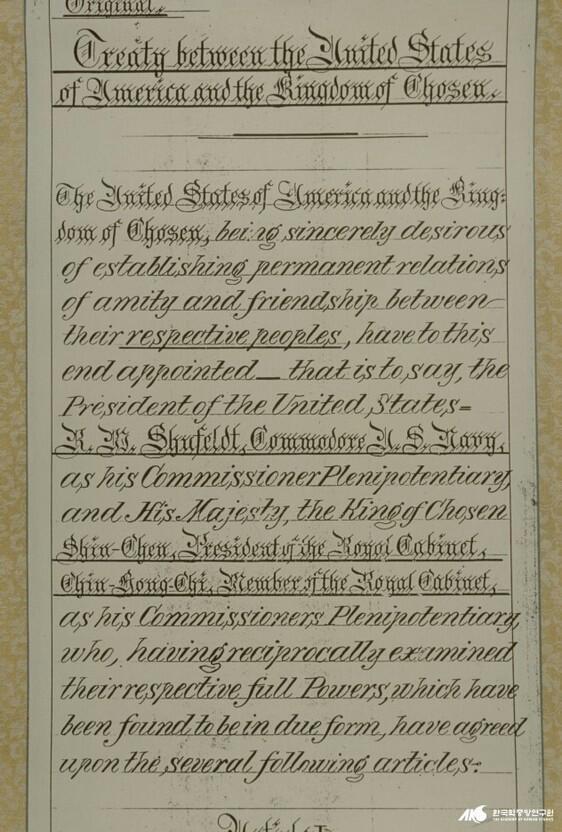 Original.
Treaty between the United States
of America and the Kingdom of Chosen.
The United States of America and the King-
dom of Chosen, being sincerely desirous
of establishing permanent relations
of amity and friendship between
their respective peoples, have to this
end appointed — that is to say, the
President of the United States=
R. W. Shufeldt, Commodore U. S. Navy,
as his Commissioner Plenipotentiary,
and His Majesty, the King of Chosen
Shin-Chen, President of the Royal Cabinet,
Chin-Hong-Chi, Member of the Royal Cabinet,
as his Commissioners Plenipotentiary,
who, having reciprocally examined
their respective full Powers, which have
been found to be in due form, have agreed
upon the several following articles:
Article I
한국학중앙연구원
THE ACADEMY OF KOREAN STUDIES